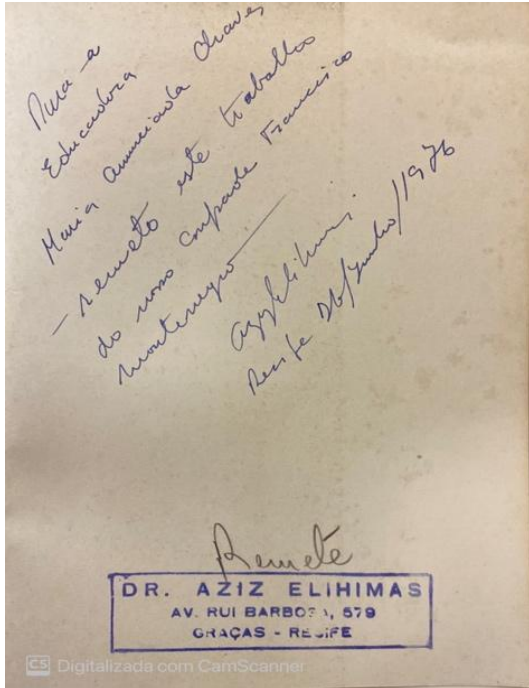 Para a
Educadora
Maria Anunciada Chaves
– remeto este trabalho
do nosso compadre Francisco
Montenegro
Azizelihimas
Recife 26/Junho/1976
Remete
DR. AZIZ ELIHIMAS
AV. RUI BARBOSA, 579
GRAÇAS - RECIFE
CS Digitalizada com CamScanner